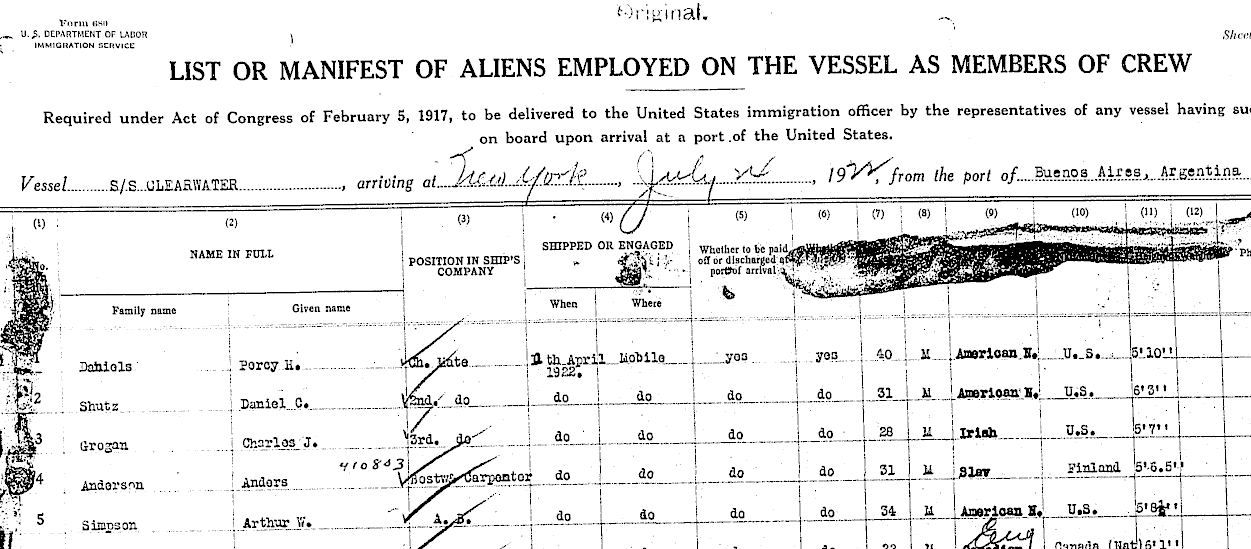 Original.
Form 680
U. S. DEPARTMENT OF LABOR
IMMIGRATION SERVICE
Sheet
LIST OR MANIFEST OF ALIENS EMPLOYED ON THE VESSEL AS MEMBERS OF CREW
Required under Act of Congress of February 5, 1917, to be delivered to the United States immigration officer by the representatives of any vessel having suc
on board upon arrival at a port of the United States.
Vessel S/S CLEARWATER, arriving at New York, July 24, 1922, from the port of Buenos Aires, Argentina
(1) (2) (3) (4) (5) (6) (7) (8) (9) (10) (11) (12)
No. NAME IN FULL POSITION IN SHIP'S COMPANY SHIPPED OR ENGAGED Whether to be paid off or discharged at port of arrival Ph
Family name Given name When Where
1 Daniels Percy H. Ch. Mate 11th April 1922. Mobile yes yes 40 M American N. U. S. 5'10''
2 Shutz Daniel C. 2nd. do do do do do 31 M American N. U.S. 6'3''
3 Grogan Charles J. 3rd. do do do do do 28 M Irish U.S. 5'7''
410803
4 Anderson Anders Bostw& Carpenter do do do do 31 M Slav Finland 5'6.5''
5 Simpson Arthur W. A. B. do do do do 34 M American N. U.S. 5'8½''
Eng
Canada (Nat) 6'1''